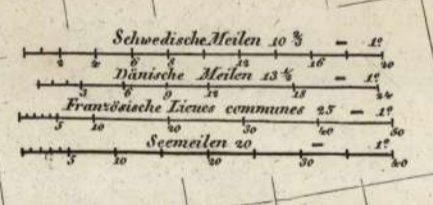 Schwedische Meilen 10 2/3 — 1°
2 4 6 8 12 16 20
Dänische Meilen 13 1/2 — 1°
3 6 9 12 18 24
Französische Lieues communes 25 — 1°
5 10 20 30 40 50
Seemeilen 20 — 1°
5 10 20 30 40